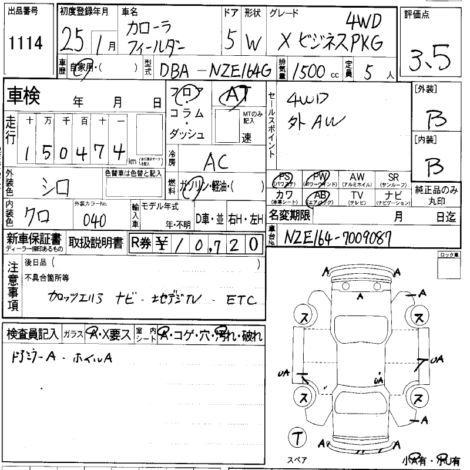 出品番号 1114
初度登録年月 25年 1月
車名 カローラ フィールダー
ドア 5 形状 W
グレード 4WD X ビジネスPKG
評価点 3.5
車歴 自家用・( )
型式 DBA-NZE164G
排気量 1500 cc
定員 5 人
車検 年 月 日
フロア コラム・ダッシュ
AT MTのみ記入 速
セールスポイント 4WD 外AW
[外装] B
[内装] B
走行 十 万 千 百 十 一
150474 km
冷房 AC
外装色 シロ
色替車は色替と記入
燃料 ガソリン・軽油・( )
PS (パワステ) PW (パワーウィンド) AW (アルミホイル) SR (サンルーフ)
カワ (本革シート) AB (エアバッグ) TV (テレビ) ナビ (ナビゲーション)
純正品のみ丸印
内装色 クロ
外装カラーNo. 040
輸入車 モデル年式 年・不明 D車・並 右H・左H
名変期限 月 日迄
新車保証書 ディーラー捺印あるもの
取扱説明書
R券 ¥10,720
車台No. NZE164-7009087
注意事項 後日品( )
不具合箇所等
ナビ・地デジTV・ETC
ロック車
検査員記入 ガラス A・X要ス 室内 シート A・コゲ・穴・汚れ・破れ
ドアミラーA・ホイルA
A
A A
ス ス
UA A A
UA
ス ス
A A
T スペア
A A
小A有・小U有